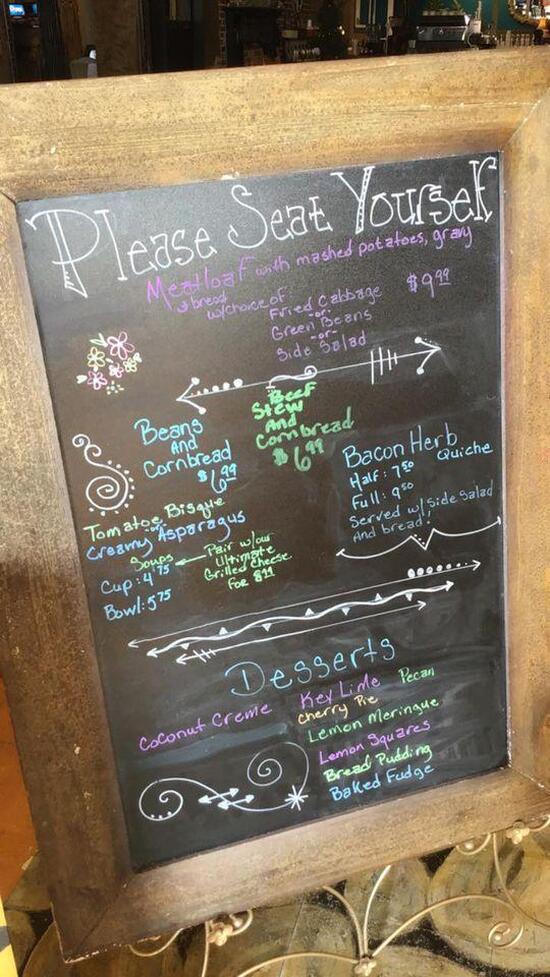 Please Seat Yourself
Meatloaf with mashed potatoes, gravy
& bread w/choice of $9.99
Fried Cabbage
-or-
Green Beans
-or-
Side Salad
Beans
And
Cornbread
$6.99
Beef
Stew
And
Cornbread
$6.99
Bacon Herb
Quiche
Half: 7.50
Full: 9.50
Served w/Side Salad
And bread!
Tomatoe Bisque
or
Creamy Asparagus
Soups
Cup: 4.75
Bowl: 5.75
Pair w/our
Ultimate
Grilled Cheese
For 8.99
Desserts
Coconut Creme
Key Lime Pecan
Cherry Pie
Lemon Meringue
Lemon Squares
Bread Pudding
Baked Fudge